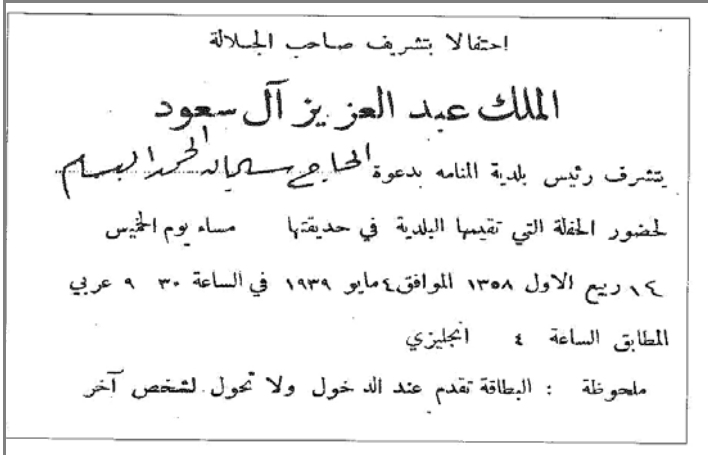 احتفالا بتشريف صاحب الجلالة
الملك عبد العزيز آل سعود
يتشرف رئيس بلدية المنامه بدعوة الحاج سليمان الحمد البسام
لحضور الحفلة التي تقيمها البلدية في حديقتها مساء يوم الخميس
١٤ ربيع الاول ١٣٥٨ الموافق ٤ مايو ١٩٣٩ في الساعة ٣٠ ٩ عربي
المطابق الساعة ٤ انجليزي
ملحوظة : البطاقة تقدم عند الدخول ولا تحول لشخص آخر